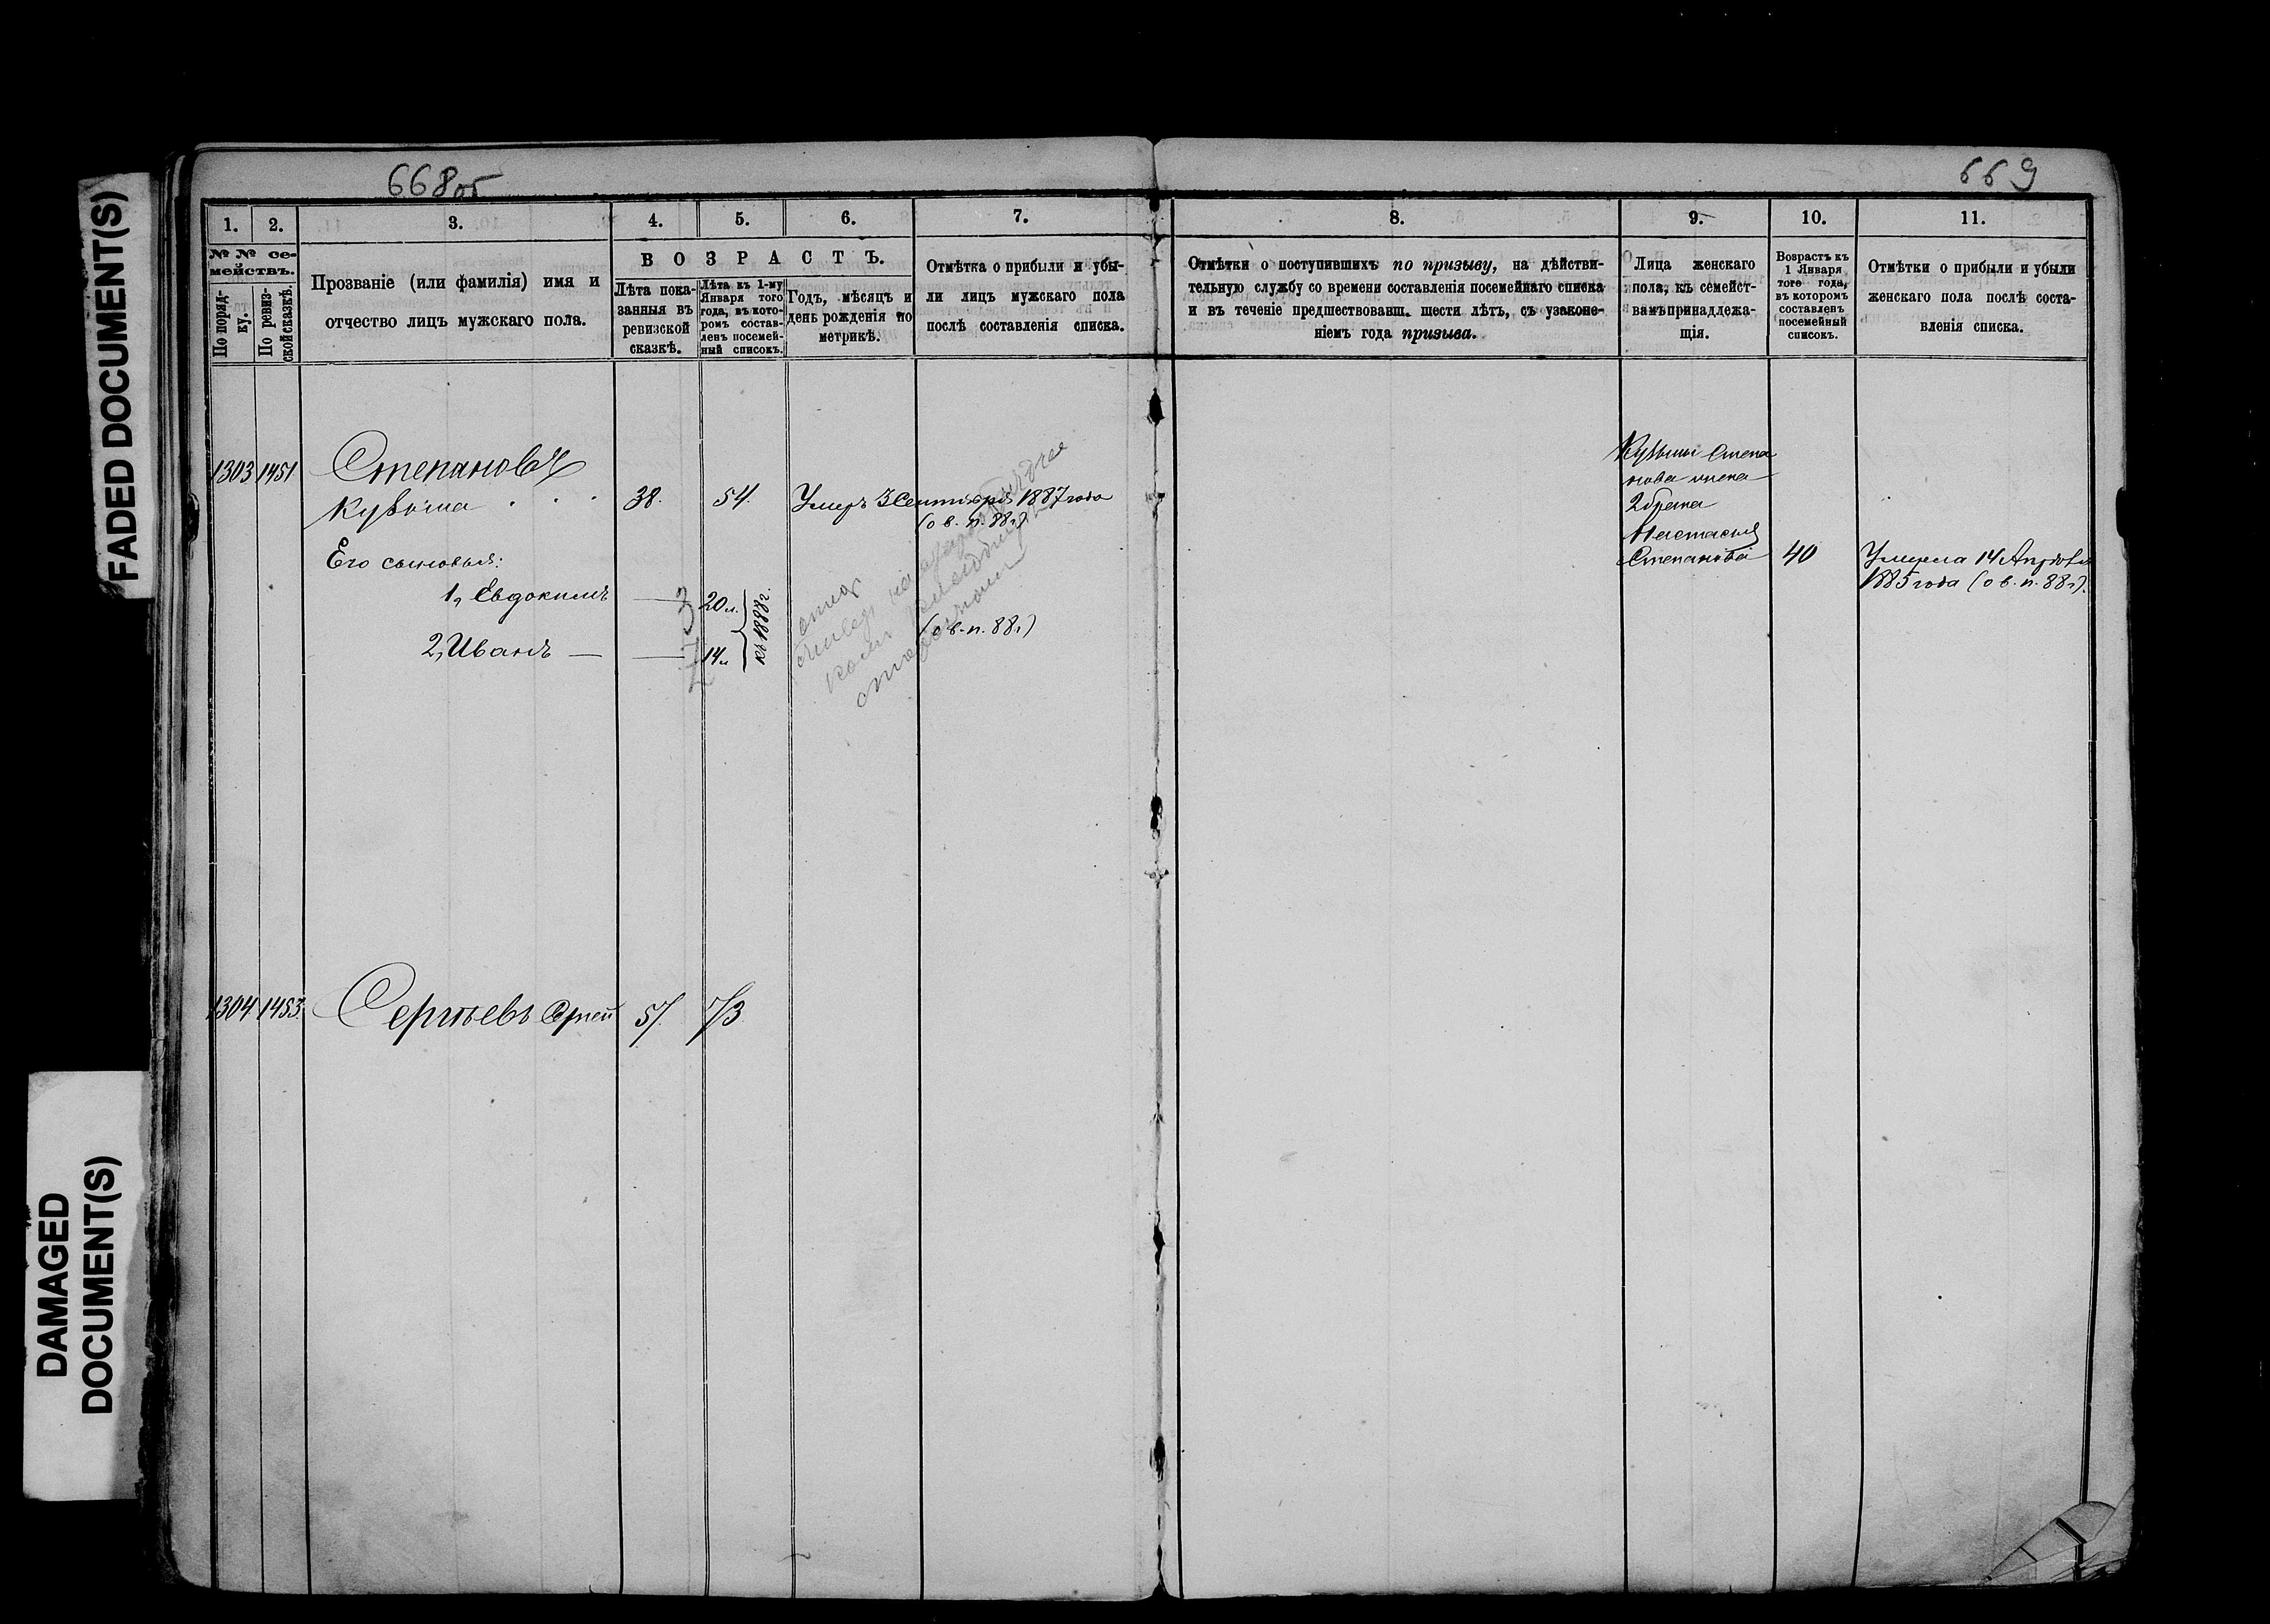 FADED DOCUMENT(S)
DAMAGED
DOCUMENT(S)
668об
669
1.
2.
3.
4.
5.
6.
7.
8.
9.
10.
11.
№ № се-
мействъ.
По поряд-
ку.
По ревиз-
ской сказкѣ.
Прозваніе (или фамилія) имя и
отчество лицъ мужскаго пола.
ВОЗРАСТЪ.
Лѣта пока-
занныя въ
ревизской
сказкѣ.
Лѣта къ 1-му
Января того
года, въ кото-
ромъ состав-
ленъ посемей-
ный списокъ.
Годъ, мѣсяцъ и
день рожденія по
метрикѣ.
Отмѣтка о прибыли и убы-
ли лицъ мужскаго пола
послѣ составленія списка.
Отмѣтки о поступившихъ по призыву, на дѣйстви-
тельную службу со времени составленія посемейнаго списка
и въ теченіе предшествовавш. шести лѣтъ, съ узаконе-
ніемъ года призыва.
Лица женскаго
пола, къ семейст-
вамъ принадлежа-
щія.
Возрастъ къ
1 Января
того года,
въ которомъ
составленъ
посемейный
списокъ.
Отмѣтки о прибыли и убыли
женскаго пола послѣ соста-
вленія списка.
1303 1451 Степановъ
Кузьма 38. 54. Умеръ 3 Сентября 1887 года
(о в. п. 88 г)
Его сыновья:
1, Евдокимъ — 20 л.
2, Иванъ — — 14 л
къ 1888 г.
(о в. п. 88 г)
Кузьмы Степа
нова жена
2 брака
Настасья
Степанова 40
Умерла 14 Апрѣля
1885 года (о в. п. 88 г).
1304 1453 Сергѣевъ 57. 73